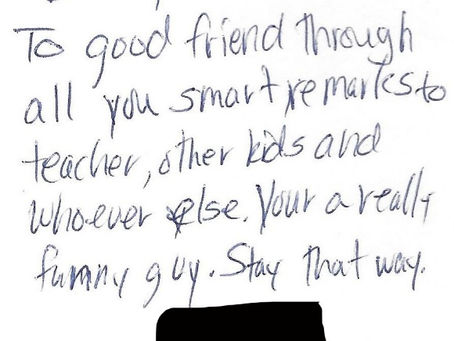 To good friend through
all you smart remarks to
teacher, other kids and
whoever else. Your a really
funny guy. Stay that way.